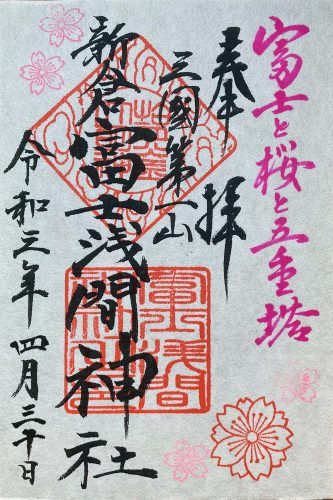 富士と桜と五重塔
奉拝
三國第一山
新倉富士浅間神社
令和三年 四月三十日